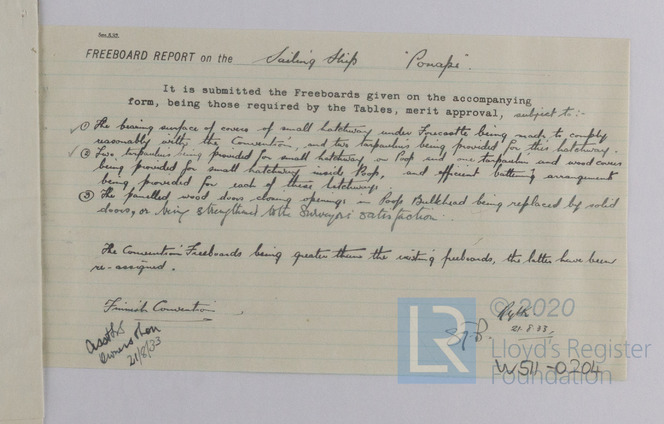 FREEBOARD REPORT on the Sailing Ship "Ponape".
It is submitted the Freeboards given on the accompanying
form, being those required by the Tables, merit approval, subject to:-
① The bearing surface of covers of small hatchway under Forecastle being made to comply
reasonably with the Convention, and two tarpaulins being provided for this hatchway.
② Two tarpaulins being provided for small hatchway on Poop and one tarpaulin and wood covers
being provided for small hatchway inside Poop, and efficient battening arrangements
being provided for each of these hatchways
③ The panelled wood doors closing openings in Poop Bulkhead being replaced by solid
doors, or being strengthened to the Surveyors satisfaction.
The Convention Freeboards being greater than the existing freeboards, the latter have been
re-assigned.
Finnish Convention
21/8/33
21.8.33
© 2020
Lloyd's Register
Foundation
W511-0204
LR